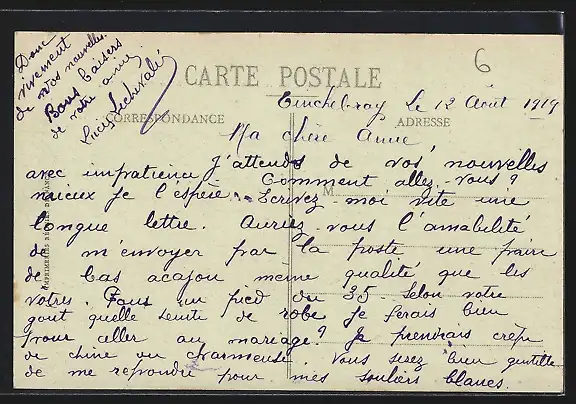 Donc
vivement
de vos nouvelles.
Bons baisers
de votre amie
Lucie Lechevalié
6
CARTE POSTALE
CORRESPONDANCE
ADRESSE
Tinchebray Le 12 Août 1919
Ma chère Annie
avec impatience J'attends de vos nouvelles
Comment allez-vous?
mieux je l'espère. Ecrivez-moi vite une
M
longue lettre. Auriez-vous l'amabilité
de m'envoyer par la poste une paire
de bas acajou même qualité que les
votres. Pour un pied du 35. Selon votre
gout quelle teinte de robe je ferais bien
pour aller au mariage? Je prendrais crêpe
de chine ou charmeuse. Vous serez bien gentille
de me repondre pour mes souliers blancs.
IMPRIMERIES REUNIES DE NANCY